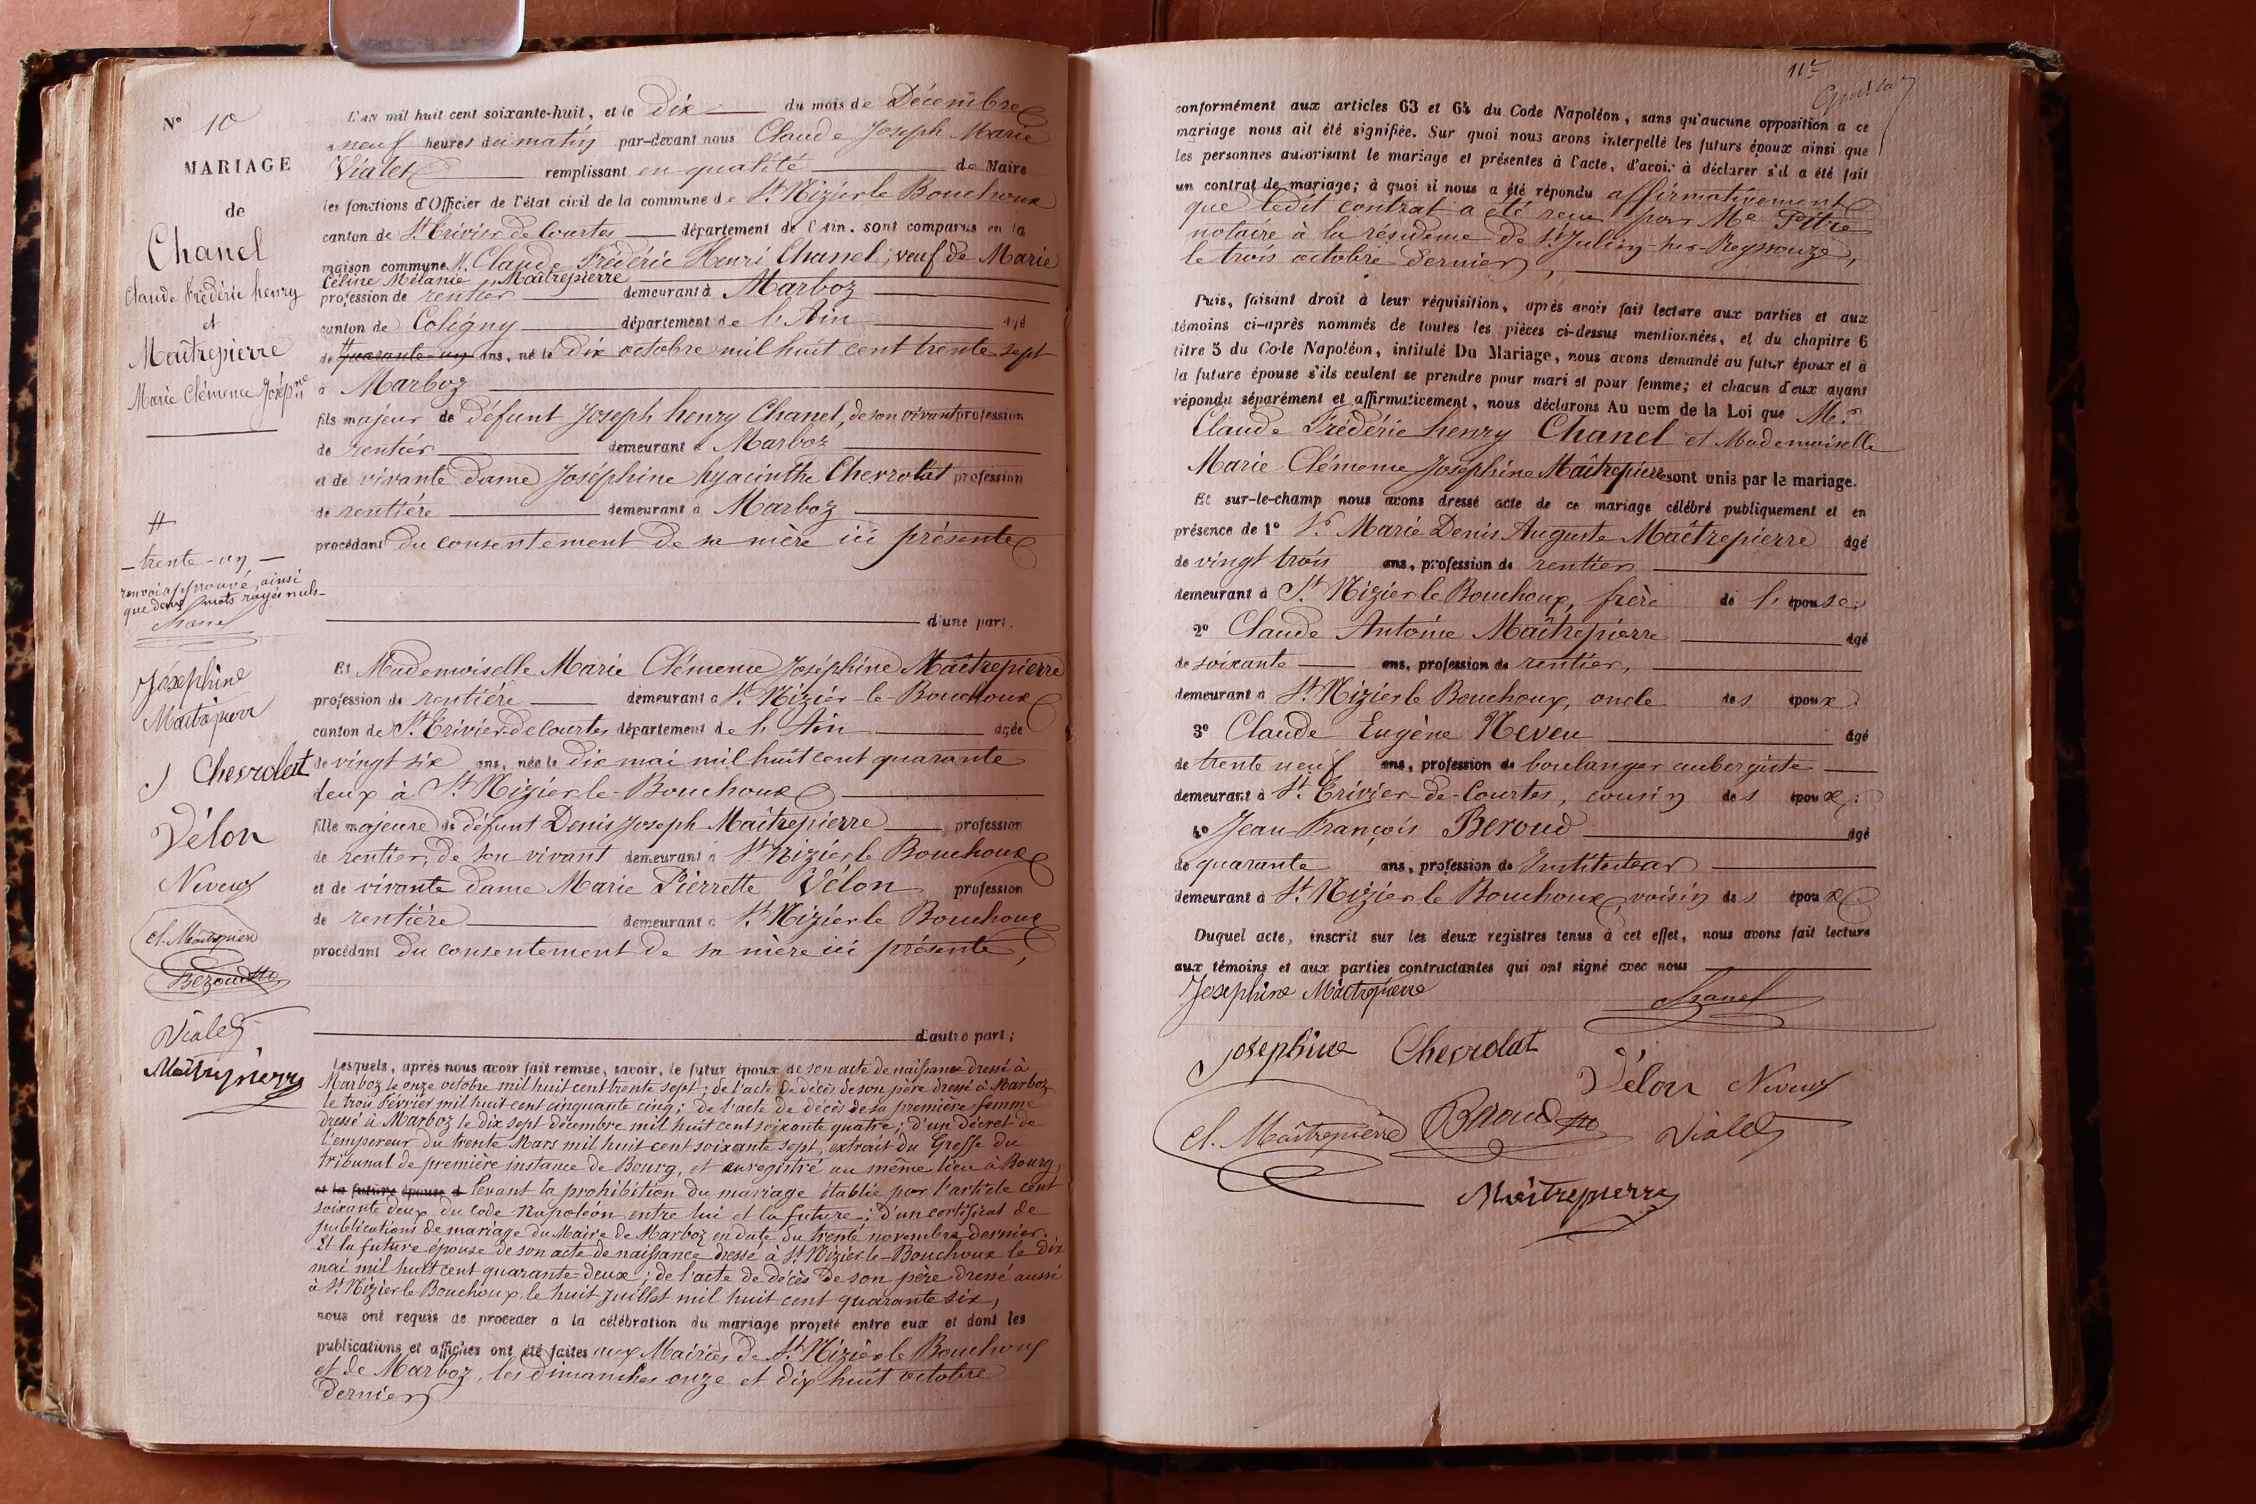 N° 10
MARIAGE
de
Chanel
Claude Frédéric henry
et
Maîtrepierre
Marie Clémence Joséphne
#
- trente-un -
renvoi approuvé, ainsi
que deux mots rayés nuls -
Chanel
Joséphine
Maîtrepierre
J Chevrolat
Vélon
Neveux
Cl. Maîtrepierre
Beroud
Vialet
Maîtrepierre
L'an mil huit cent soixante-huit, et le dix du mois de Décembre
à neuf heures du matin par-devant nous Claude Joseph Marie
Vialet remplissant en qualité de Maire
les fonctions d'Officier de l'état civil de la commune de St Nizier le Bouchoux
canton de St Trivier de Courtes département de l'Ain. sont comparus en la
maison commune M. Claude Frédéric Henri Chanel, veuf de Marie
Céline Mélanie Maîtrepierre
profession de rentier demeurant à Marboz
canton de Coligny département de l'Ain âgé
de # quarante-un ans, né le dix octobre mil huit cent trente sept
à Marboz
fils majeur de défunt Joseph henry Chanel, de son vivant profession
de rentier demeurant à Marboz
et de vivante dame Joséphine hyacinthe Chevrolat profession
de rentière demeurant à Marboz
procédant du consentement de sa mère ici présente
d'une part.
Et Mademoiselle Marie Clémence Joséphine Maîtrepierre
profession de rentière demeurant à St Nizier-le-Bouchoux
canton de St Trivier-de Courtes département de l'Ain âgée
de vingt six ans, née le dix mai mil huit cent quarante
deux à St Nizier-le-Bouchoux
fille majeure de défunt Denis Joseph Maîtrepierre profession
de rentier, de son vivant demeurant à St Nizier le Bouchoux
et de vivante dame Marie Pierrette Vélon profession
de rentière demeurant à St Nizier le Bouchoux
procédant du consentement de sa mère ici présente,
d'autre part;
Lesquels, après nous avoir fait remise, savoir, le futur époux de son acte de naissance dressé à
Marboz le onze octobre mil huit cent trente sept; de l'acte de décès de son père dressé à Marboz
le trois Février mil huit cent cinquante cinq; de l'acte de décès de sa première femme
dressé à Marboz le dix sept décembre mil huit cent soixante quatre; d'un décret de
l'empereur du trente Mars mil huit cent soixante sept, extrait du Greffe du
tribunal de première instance de Bourg, et enregistré au même lieu à Bourg,
et la future épouse d levant la prohibition du mariage établie par l'article cent
soixante deux du code Napoléon entre lui et la future; d'un certificat de
publications de mariage du Maire de Marboz en date du trente novembre dernier.
Et la future épouse de son acte de naissance dressé à St Nizier-le-Bouchoux le dix
mai mil huit cent quarante-deux; de l'acte de décès de son père dressé aussi
à St Nizier le Bouchoux le huit Juillet mil huit cent quarante six,
nous ont requis de procéder à la célébration du mariage projeté entre eux et dont les
publications et affiches ont été faites aux Mairies de St Nizier le Bouchoux
et de Marboz, les dimanches onze et dix huit octobre
dernier
11e
conformément aux articles 63 et 64 du Code Napoléon, sans qu'aucune opposition à ce
mariage nous ait été signifiée. Sur quoi nous avons interpellé les futurs époux ainsi que
les personnes autorisant le mariage et présentes à l'acte, d'avoir à déclarer s'il a été fait
un contrat de mariage; à quoi il nous a été répondu affirmativement
que ledit contrat a été reçu par Me Pitre
notaire à la résidence de St Julien-sur-Reyssouze,
le trois octobre dernier,
Puis, faisant droit à leur réquisition, après avoir fait lecture aux parties et aux
témoins ci-après nommés de toutes les pièces ci-dessus mentionnées, et du chapitre 6
titre 5 du Code Napoléon, intitulé Du Mariage, nous avons demandé au futur époux et à
la future épouse s'ils veulent se prendre pour mari et pour femme; et chacun d'eux ayant
répondu séparément et affirmativement, nous déclarons Au nom de la Loi que Mr
Claude Frédéric henry Chanel et Mademoiselle
Marie Clémence Joséphine Maîtrepierre sont unis par le mariage.
Et sur-le-champ nous avons dressé acte de ce mariage célébré publiquement et en
présence de 1° Sr Marie Denis Auguste Maîtrepierre âgé
de vingt trois ans, profession de rentier
demeurant à St Nizier le Bouchoux, frère de l'épouse;
2° Claude Antoine Maîtrepierre âgé
de soixante ans, profession de rentier,
demeurant à St Nizier le Bouchoux, oncle des époux;
3° Claude Eugène Neveu âgé
de trente neuf ans, profession de boulanger aubergiste
demeurant à St Trivier-de-Courtes, cousin des époux;
4° Jean François Beroud âgé
de quarante ans, profession de Instituteur
demeurant à St Nizier le Bouchoux, voisin des époux
Duquel acte, inscrit sur les deux registres tenus à cet effet, nous avons fait lecture
aux témoins et aux parties contractantes qui ont signé avec nous
Joséphine Maîtrepierre Chanel
Josephine Chevrolat
Vélon Neveux
Cl. Maîtrepierre Beroud Vialet
Maîtrepierre